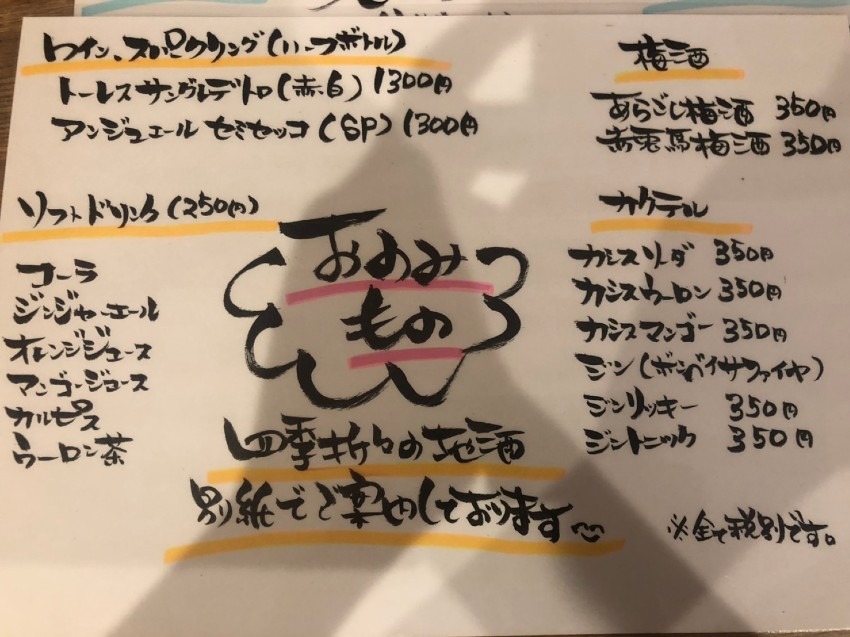 ワイン、スパークリング(ハーフボトル)
トーレスサングレデトロ(赤・白) 1300円
アンジュエール セミセッコ(SP) 1300円
梅酒
あらごし梅酒 350円
赤兎馬梅酒 350円
ソフトドリンク(250円)
コーラ
ジンジャーエール
オレンジジュース
マンゴージュース
カルピス
ウーロン茶
おのみ
もの
四季折々の地酒
別紙でご案内しております
カクテル
カシスソーダ 350円
カシスウーロン 350円
カシスマンゴー 350円
ジン(ボンベイサファイヤ)
ジンリッキー 350円
ジントニック 350円
※全て税別です。